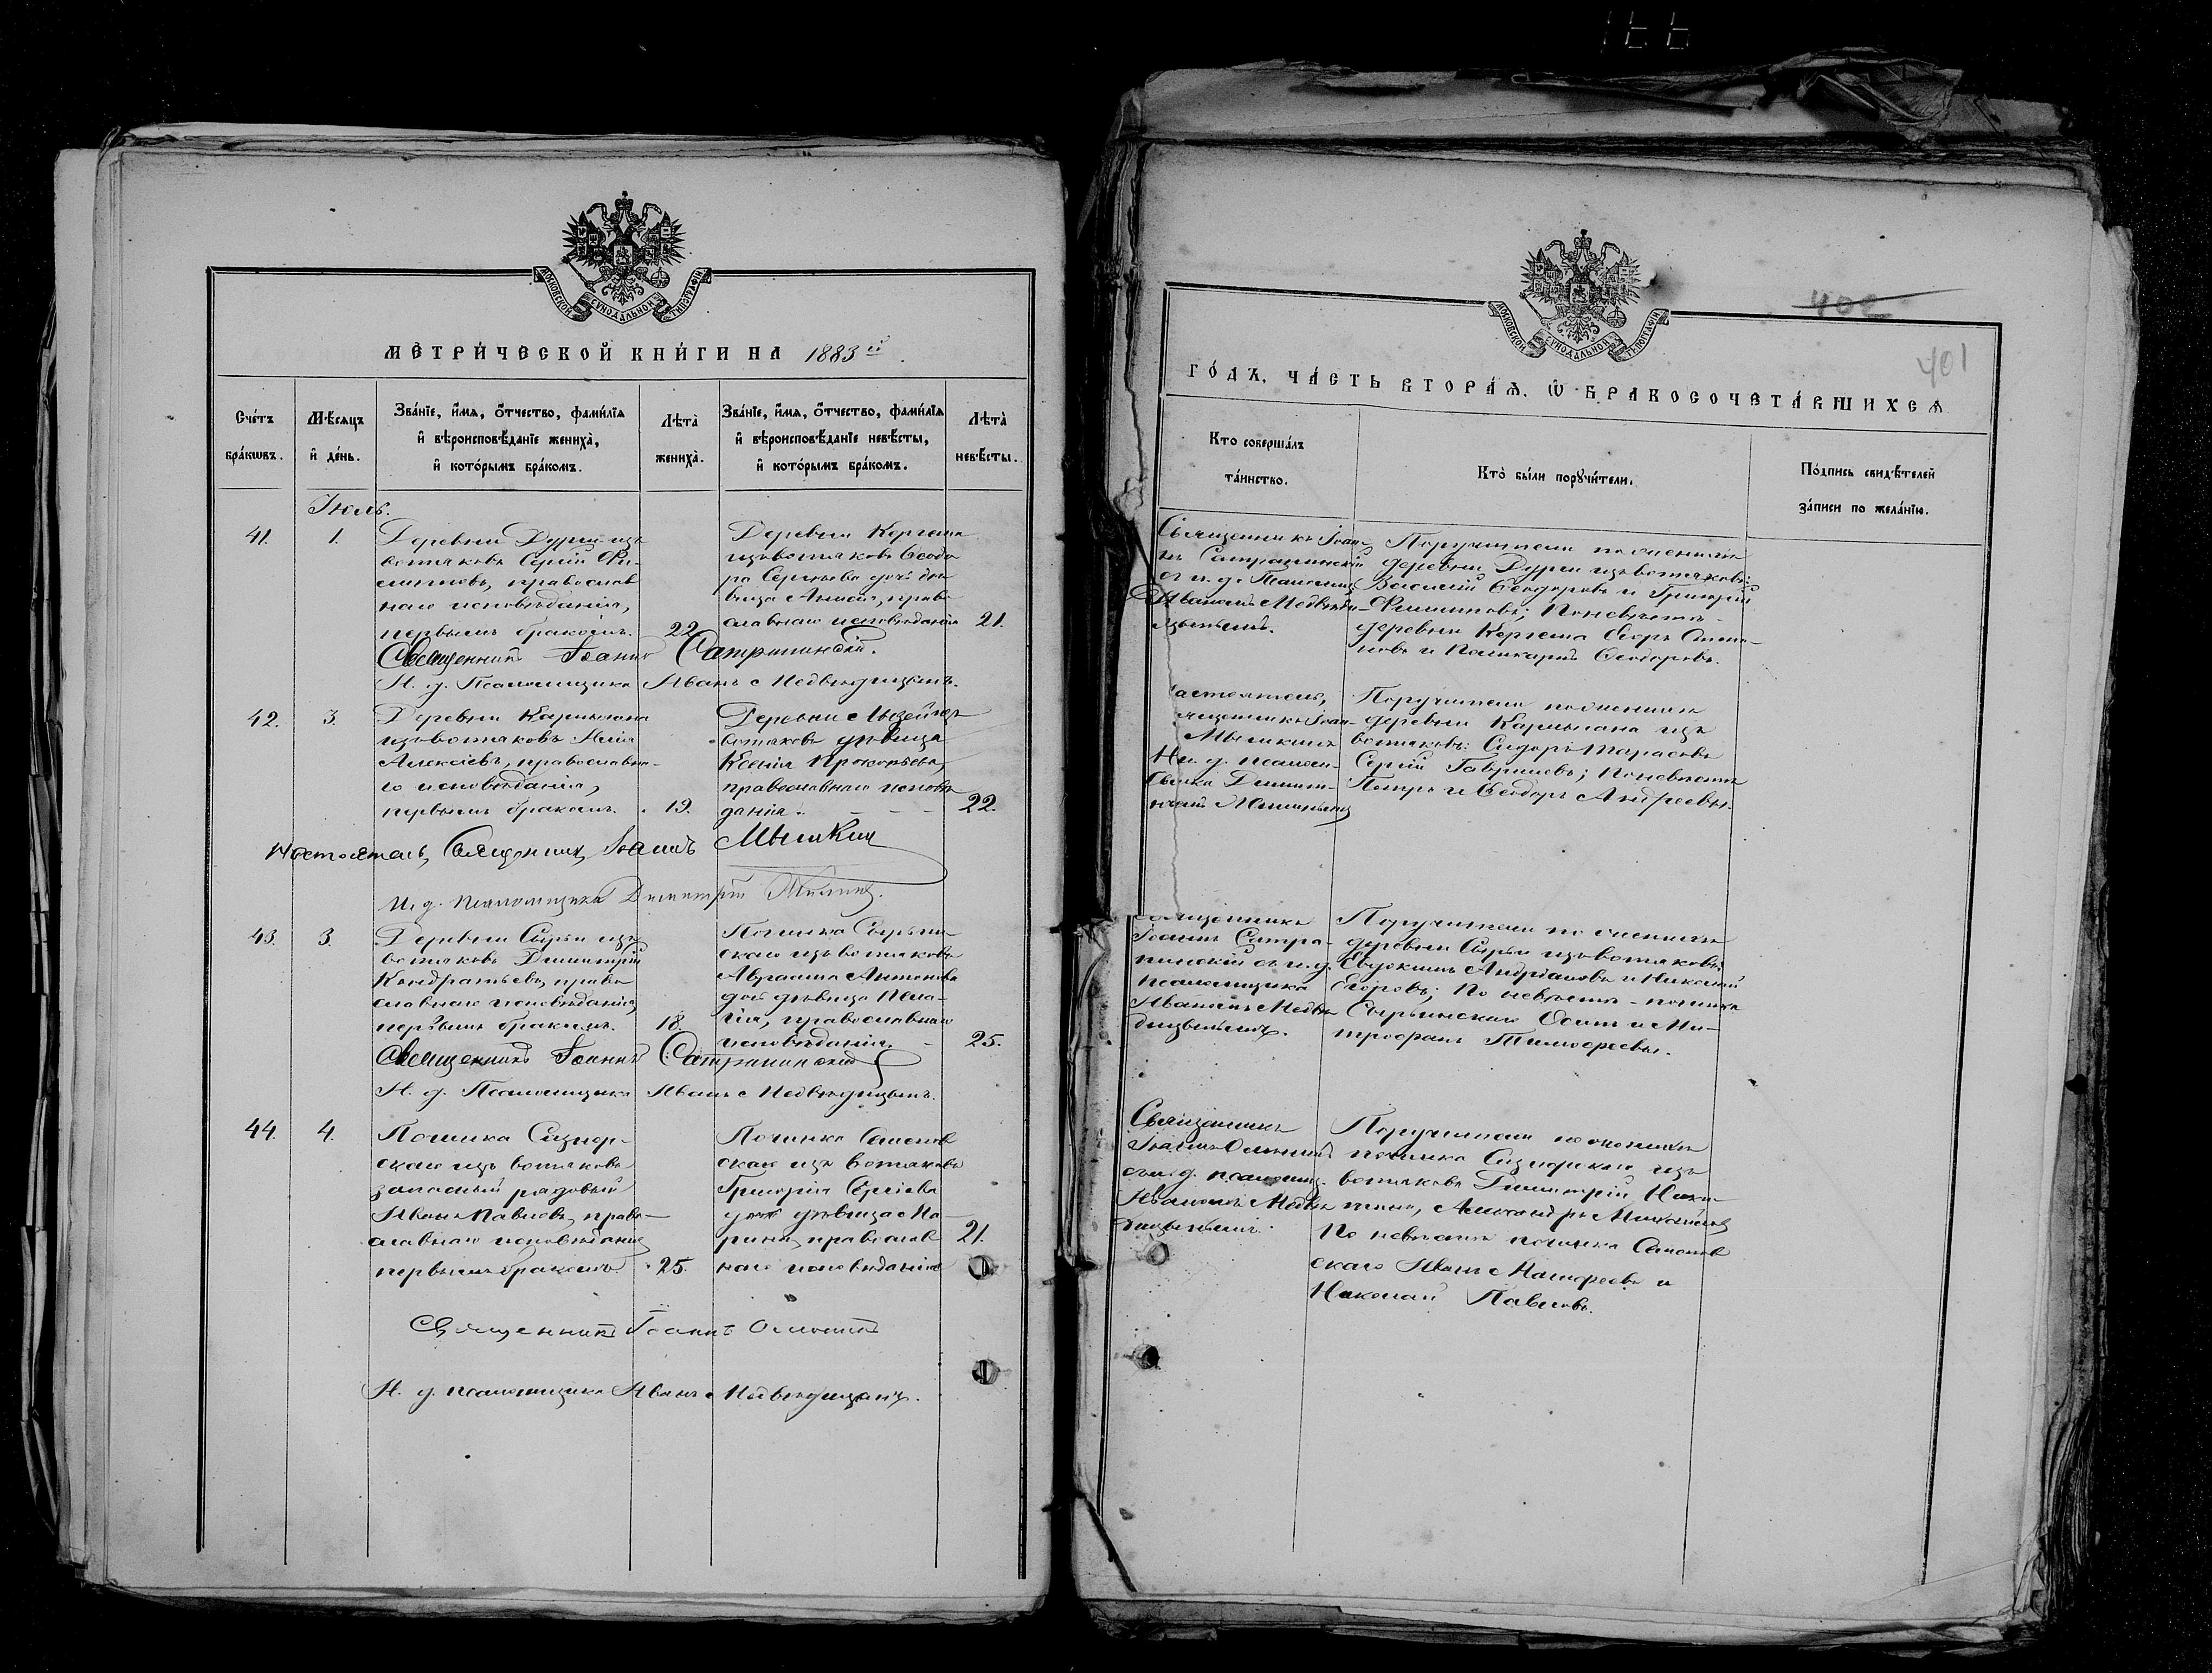 МОСКОВСКОЙ СѴНОДАЛЬНОЙ ТИПОГРАФІИ
МЕТРИ́ЧЕСКОЙ КНИ́ГИ НА 1883 й.
Сче́тъ бра́кѡвъ.
Мѣ́сяцъ и҆ де́нь.
Зва́нїе, и҆́мя, ѻ҆́тчество, фами́лїя и҆ вѣроисповѣ́данїе жениха̀, и҆ кото́рымъ бра́комъ.
Лѣта̀ жениха̀.
Зва́нїе, и҆́мя, ѻ҆́тчество, фами́лїя и҆ вѣроисповѣ́данїе невѣ́сты, и҆ кото́рымъ бра́комъ.
Лѣта̀ невѣ́сты.
Іюль.
41.
1.
Деревни Дурги изъ
вотяковъ Сергій Фи-
липповъ, православ
наго исповѣданія,
первымъ бракомъ.
22.
Деревни
изъ вотяковъ Ѳеодо
ра Сергѣева дочь дѣ
вица Анисія, право
славнаго исповѣданія
21.
Священникъ Іоаннъ Сатрапинскій.
И. д. Псаломщика Иванъ Медвѣдицынъ.
42.
3.
Деревни
изъ вотяковъ Илія
Алексіевъ, православна-
го исповѣданія,
первымъ бракомъ.
19.
Деревни изъ
вотяковъ дѣвица
Ксенія Прокопьева,
православнаго исповѣ
данія.
22.
Настоятель, Священникъ Іоаннъ Мышкин
И. д. псаломщика Димитрій
43.
3.
Деревни Сырьи изъ
вотяковъ Димитрій
Кондратьевъ, право
славнаго исповѣданія,
первымъ бракомъ.
18.
Починка Сырьин-
скаго изъ вотяковъ
Антонова
дочь дѣвица Пела-
гія, православнаго
исповѣданія.
25.
Священникъ Іоаннъ Сатрапинскій
И. д. Псаломщика Иванъ Медвѣдицынъ.
44.
4.
Починка
скаго изъ вотяковъ
запасный рядовый
Иванъ Павловъ, право-
славнаго исповѣданія
первымъ бракомъ.
25.
Починка Семенов
скаго изъ вотяковъ
Григорія Сергіева
дочь дѣвица Ма
рина, православ
наго исповѣданія
21.
Священникъ Іоаннъ
И. д. псаломщика Иванъ Медвѣдицынъ.
МОСКОВСКОЙ СѴНОДАЛЬНОЙ ТИПОГРАФІИ
402
401
ГО́ДЪ, ЧА́СТЬ ВТОРА́Ѧ. Ѡ҆ БРАКОСОЧЕТА́ВШИХСѦ
Кто̀ соверша́лъ та́инство.
Кто̀ бы́ли порꙋчи́тели.
По́дпись свидѣ́телей за́писи по жела́нїю.
Священникъ Іоан-
нъ Сатрапинскій
съ и. д. Псаломщ
Иваномъ Медвѣди-
цынымъ.
Поручители по женихѣ
деревни Дурги изъ вотяковъ:
Василій Ѳеодоровъ и Григорій
Филипповъ; По невѣстѣ -
деревни Егоръ
новъ и Поликарпъ Ѳеодоровъ.
астоятель,
ященникъ Іоан-
Мышкинъ
и. д. псалом-
щика Димит-
Поручители по женихѣ
деревни изъ
вотяковъ: Сидоръ Тарасовъ
Сергій Гавриловъ; По невѣстѣ
Петръ и Ѳеодоръ Андреевы.
Священникъ
Іоаннъ Сатра-
пинскій съ и. д.
псаломщика
Иваномъ Медвѣ
дицынымъ.
Поручители по женихѣ
деревни Сырьи изъ вотяковъ:
Евдокимъ Андріановъ и Николай
Егоровъ; По невѣстѣ - починка
Сырьинскаго Осипъ и Ми-
трофанъ Тимофеевы.
Священникъ
Іоаннъ
съ и. д. псаломщ.
Иваномъ Медвѣ
дицынымъ.
Поручители по женихѣ
починка изъ
вотяковъ Димитрій Ники-
тинъ, Александръ Михайловъ
По невѣстѣ починка Семенов
скаго Иванъ и
Николай Павловъ.